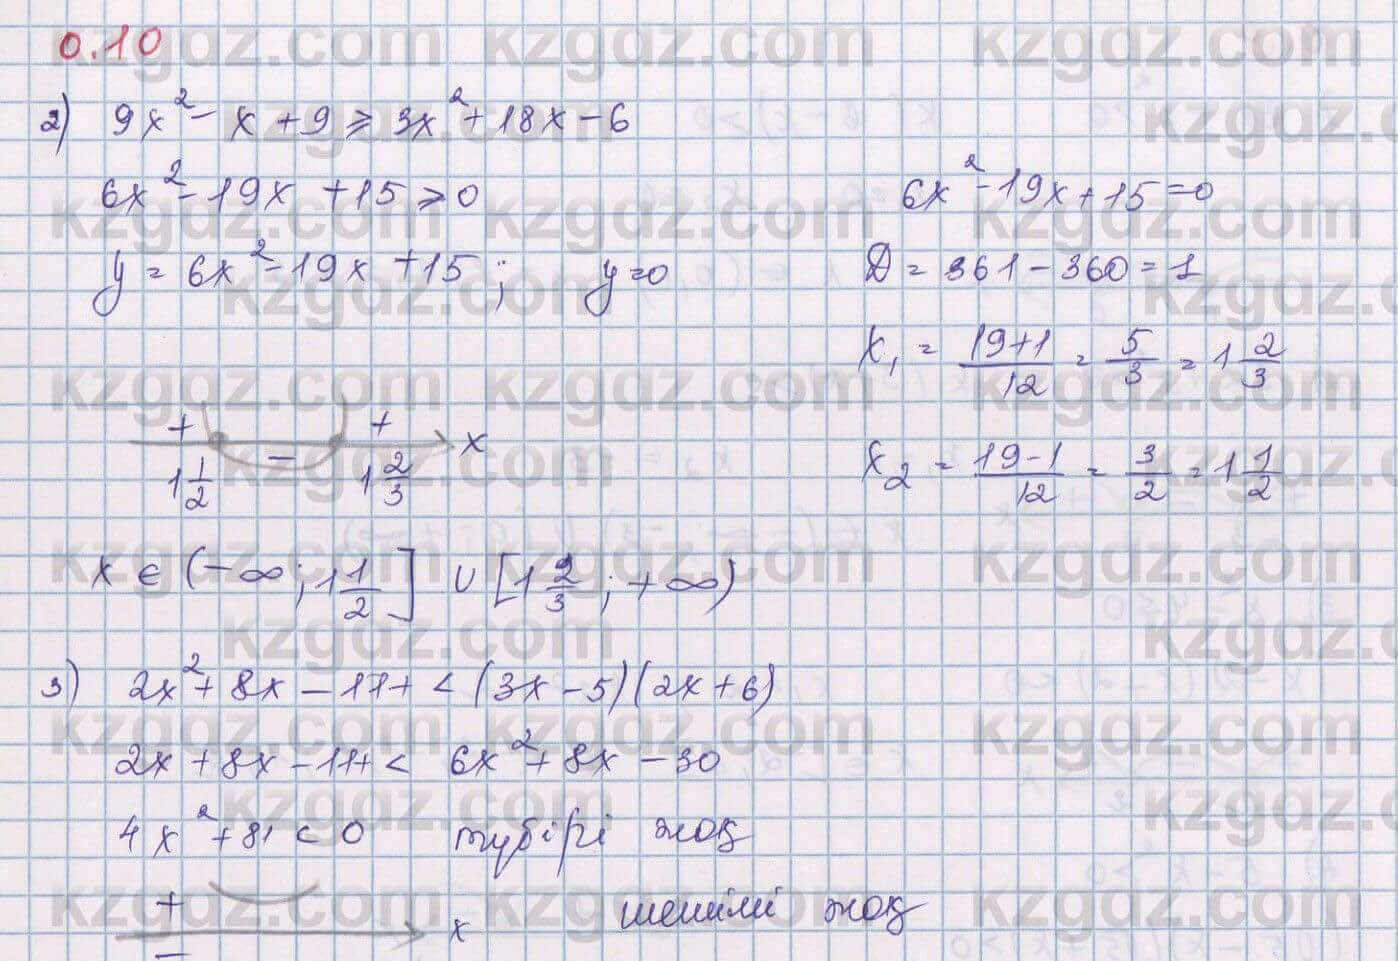 0.10
2) 9x² - x + 9 ⩾ 3x² + 18x - 6
6x² - 19x + 15 ⩾ 0
y = 6x² - 19x + 15 ; y = 0
+ - + x
1 1/2 1 2/3
x ∈ (-∞; 1 1/2] ∪ [1 2/3; +∞)
6x² - 19x + 15 = 0
D = 361 - 360 = 1
x₁ = (19+1)/12 = 5/3 = 1 2/3
x₂ = (19-1)/12 = 3/2 = 1 1/2
3) 2x² + 8x - 111 < (3x - 5)(2x + 6)
2x + 8x - 111 < 6x² + 8x - 30
4x² + 81 < 0 түбірі жоқ
+ x
- шешімі жоқ
kzgdz.com